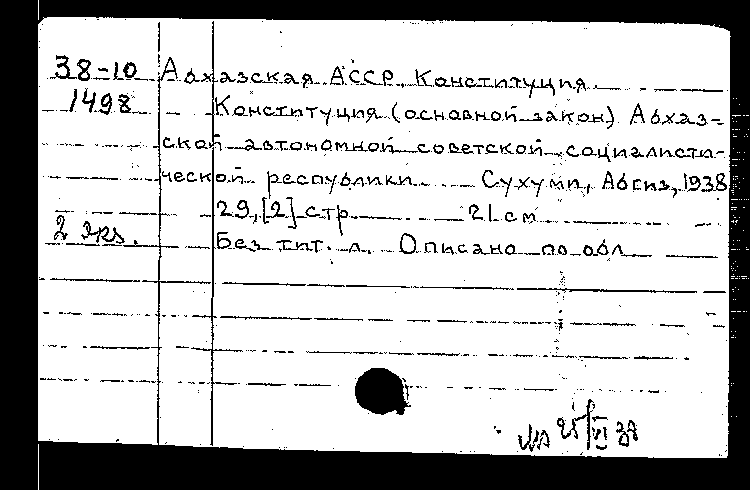 38-10 Абхазская АССР. Конституция.
1498 Конституция (основной закон) Абхаз-
ской автономной советской социалисти-
ческой республики. Сухуми, Абгиз, 1938
29, [2] стр. 21 см
2 экз. Без тит. л. Описано по обл.
25/VI 38